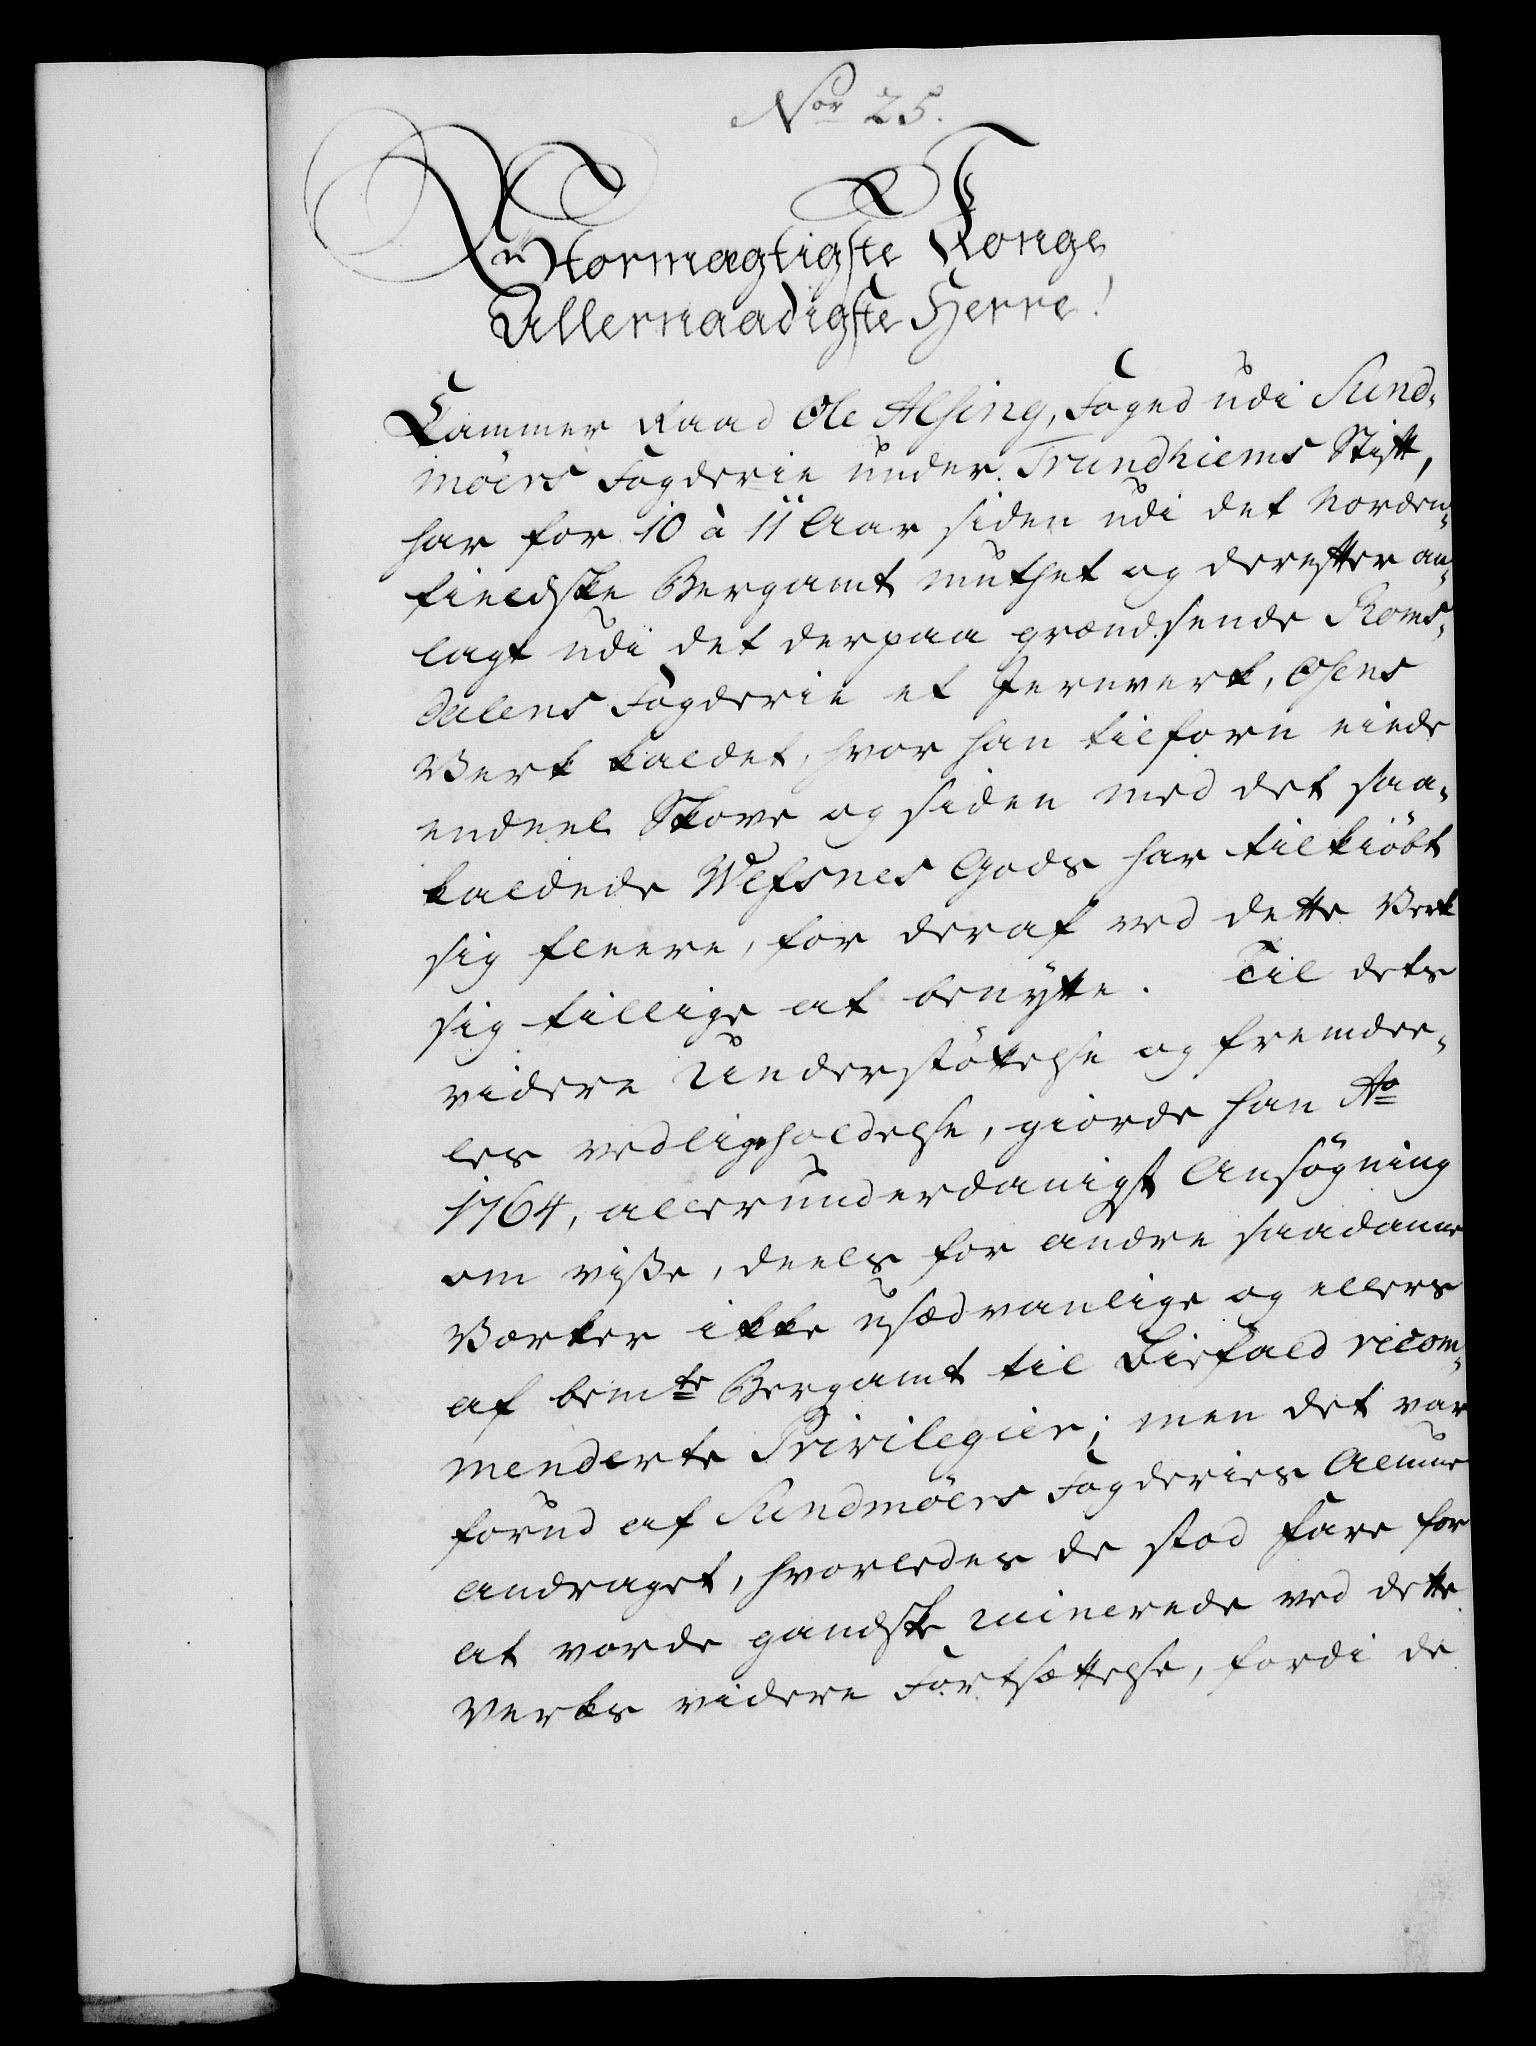 Nor 25.
Stormægtigste Konge
Allernaadigste Herre!
Cammer Raad Ole Alsing, Foged udi Sund-
möers Fogderie under Trundhiems Stift,
har for 10 à 11 Aar siden udi det Norden-
fieldske Bergamt muthet og derefter an-
lagt udi det derpaa grændsende Roms-
dalens Fogderie et Jernverk, Osens
Verk kaldet, hvor han tilforn eiede
endeel Skove og siden med det saa-
kaldede Wefsnes Gods har tilkiöbt
sig fleere, for deraf ved dette Verk
sig tillige at benytte. Til dets
videre Understöttelse og fremdee-
les vedligeholdelse, giorde han Ao
1764, allerunderdanigst Ansögning
om visse, deels for andre saadanne
Værker ikke usædvanlige og ellers
af bemte Bergamt til Biefald recom-
menderte Privilegier; men det var
forud af Sundmöers Fogderies Almue
andraget, hvorledes de stod fare for
at vorde gandske ruinerede ved dette
Verks videre Fortsættelse, fordi de